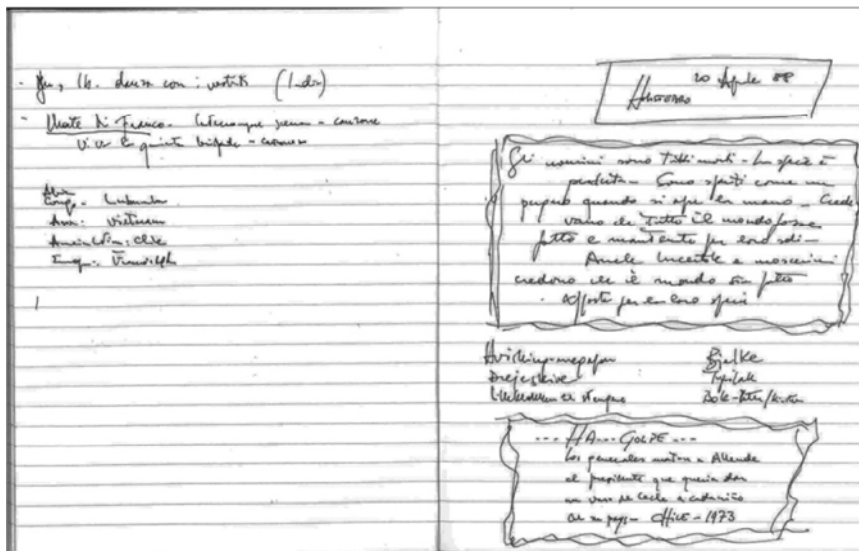 danza con i vestiti (India)
Morte di Franco - canzone
Viva la quinta brigada -
Congo - Lumumba
Asia: Vietnam
America latina: Chile
20 Aprile 88
Holstebro
Gli uomini sono tutti morti - La specie è
perduta - Sono spariti come un
pugno quando si apre la mano - Crede
vano che tutto il mondo fosse
fatto e mantenuto per loro soli -
Anche lucertole e moscerini
credono che il mondo sia fatto
apposta per la loro specie
Bjelke
Drejeskive
Tupilak
--- HA --- GOLPE ---
Los generales matan a Allende
el presidente que queria dar
un vaso de leche a cada niño
de su pays - CHILE - 1973